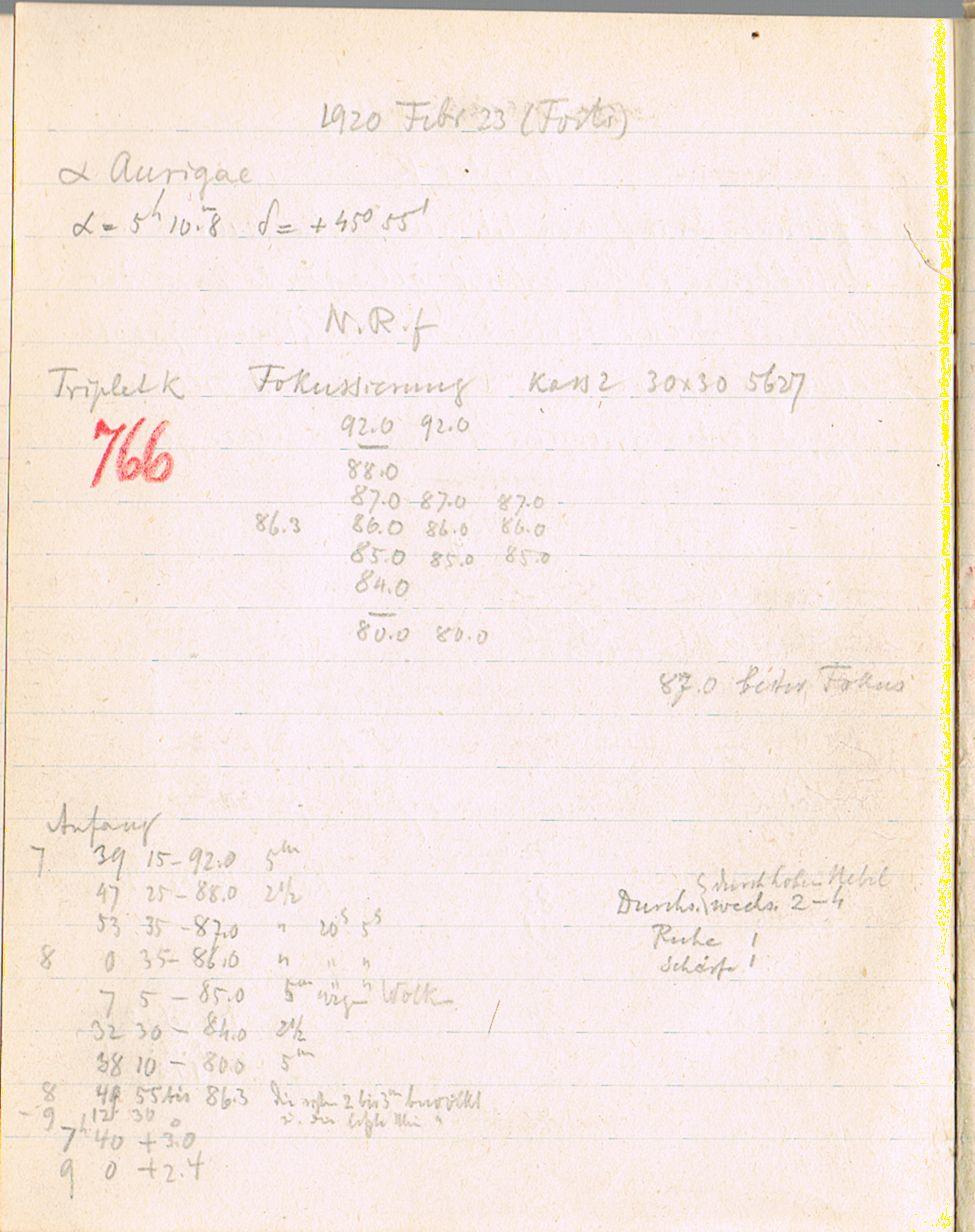 1920 Febr 23 (Forts)
α Aurigae
α = 5h 10.m8 δ = +45° 55'
N.R.f
Triplet K Fokussierung Kass 2 30x30 5627
766
92.0 92.0
88.0
87.0 87.0 87.0
86.3 86.0 86.0 86.0
85.0 85.0 85.0
84.0
80.0 80.0
87.0 bester Fokus
Anfang
7 39 15 – 92.0 5m
47 25 – 88.0 2½
53 35 – 87.0 " 20s 5s
8 0 35 – 86.0 " " "
7 5 – 85.0 5m wegen Wolken
32 30 – 84.0 2½
38 10 – 80.0 5m
8 49 55 bis 86.3 die ersten 2 bis 3m bewölkt
– 9 12 30 u. die letzte Min "
7h 40 +3.0
9 0 +2.4
durch hohen Nebel
Durchs. wechs. 2–4
Ruhe 1
Schärfe 1